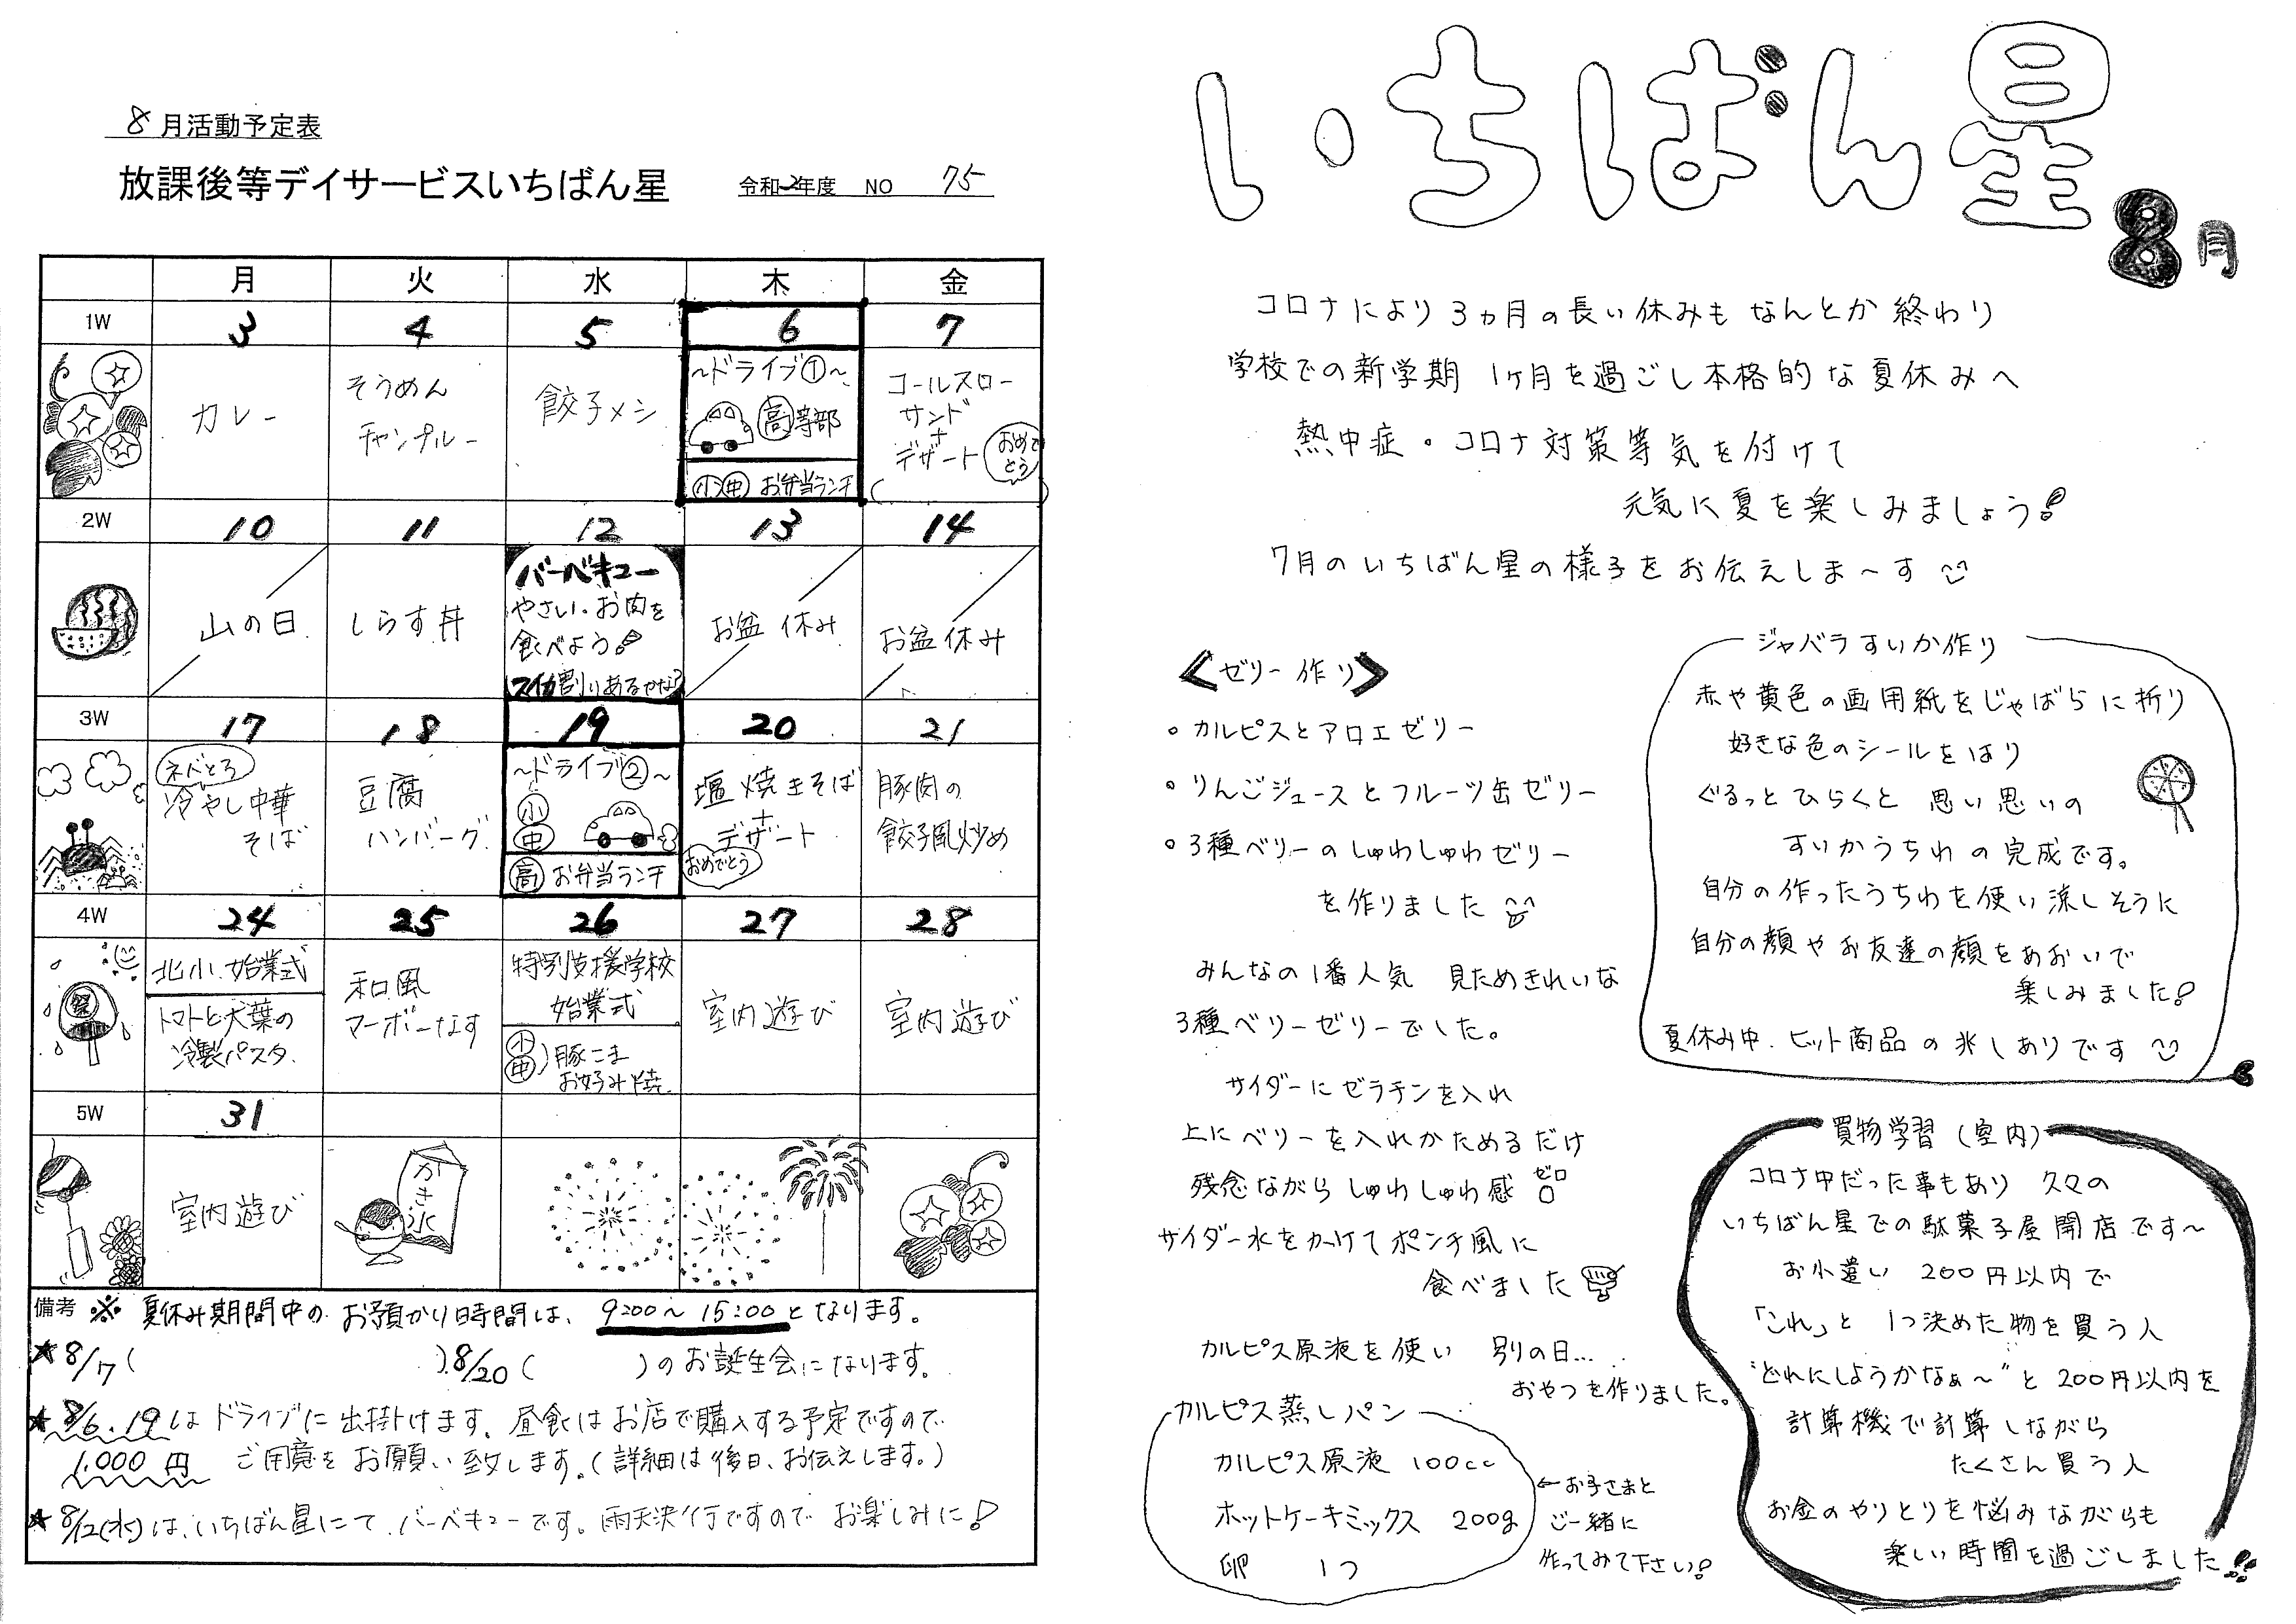 8月活動予定表
放課後等デイサービスいちばん星 令和2年度 NO 75
月 火 水 木 金
1W 3 4 5 6 7
カレー
そうめん
チャンプルー
餃子メシ
~ドライブ①~
高等部
小 中 お弁当ランチ
コールスロー
サンド
+
デザート
おめで
とう
2W 10 11 12 13 14
山の日
しらす丼
バーベキュー
やさい・お肉を
食べよう!
スイカ割りあるかな?
お盆休み
お盆休み
3W 17 18 19 20 21
ネバとろ
冷やし中華
そば
豆腐
ハンバーグ
~ドライブ②~
小
中
高 お弁当ランチ
塩焼きそば
+
デザート
おめでとう
豚肉の
餃子風炒め
4W 24 25 26 27 28
祭
北小 始業式
トマトと大葉の
冷製パスタ
和風
マーボーなす
特別支援学校
始業式
小
中
)豚こま
お好み焼
室内遊び
室内遊び
5W 31
室内遊び
かき氷
備考 ※ 夏休み期間中の お預かり時間は、9:00~15:00となります。
★8/7( )8/20( )のお誕生会になります。
★8/6.19はドライブに出掛けます。昼食はお店で購入する予定ですので
1.000円 ご用意をお願い致します。(詳細は後日、お伝えします。)
★8/12(水)は、いちばん星にて バーベキューです。雨天決行ですので お楽しみに!
いちばん星
8月
コロナにより 3ヵ月の長い休みも なんとか終わり
学校での新学期 1ヶ月を過ごし本格的な夏休みへ
熱中症・コロナ対策等気を付けて
元気に夏を楽しみましょう!
7月のいちばん星の様子をお伝えしま~す
<ゼリー作り>
○カルピスとアロエゼリー
○りんごジュースとフルーツ缶ゼリー
○3種ベリーのしゅわしゅわゼリー
を作りました
みんなの1番人気 見ためきれいな
3種ベリーゼリーでした。
サイダーにゼラチンを入れ
上にベリーを入れかためるだけ
残念ながら しゅわしゅわ感 0
ゼロ
サイダー水をかけてポンチ風に
食べました
カルピス原液を使い 別の日...
おやつを作りました。
カルピス蒸しパン
カルピス原液 100cc
ホットケーキミックス 200g
卵 1つ
←お子さまと
ご一緒に
作ってみて下さい!
ジャバラすいか作り
赤や黄色の画用紙をじゃばらに折り
好きな色のシールをはり
ぐるっとひらくと 思い思いの
すいかうちわの完成です。
自分の作ったうちわを使い涼しそうに
自分の顔やお友達の顔をあおいで
楽しみました!
夏休み中、ヒット商品の兆しありです
買物学習(室内)
コロナ中だった事もあり 久々の
いちばん星での駄菓子屋開店です~
お小遣い 200円以内で
「これ」と 1つ決めた物を買う人
"どれにしようかなぁ~"と 200円以内を
計算機で計算しながら
たくさん買う人
お金のやりとりを悩みながらも
楽しい時間を過ごしました!!